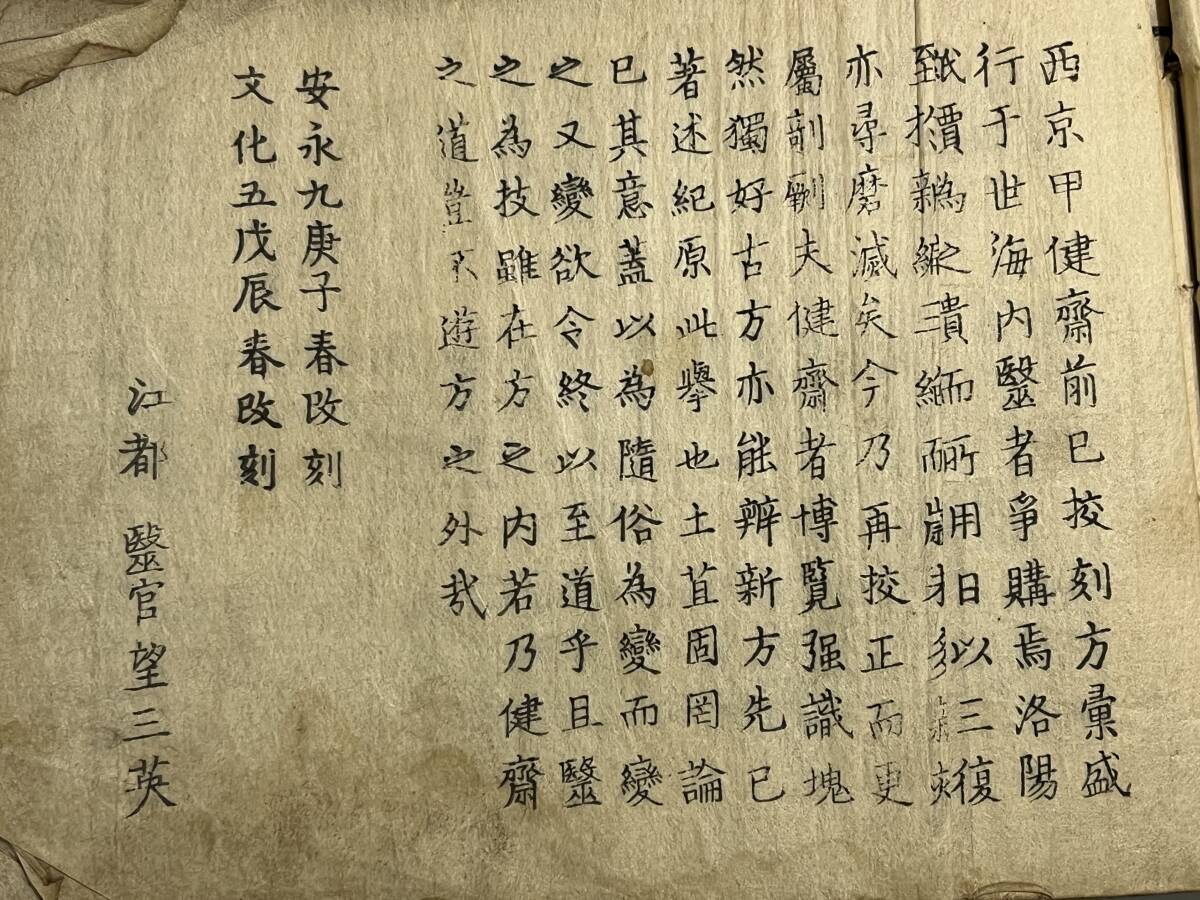 西京甲健齋前已挍刻方彙盛
行于世海内毉者爭購焉洛陽
價之而用日以三復
亦尋磨滅矣今乃再挍正而更
屬剞劂夫健齋者博覽强識塊
然獨好古方亦能辨新方先已
著述紀原此擧也土苴固罔論
已其意蓋以為隨俗為變而變
之又變欲令終以至道乎且毉
之為技雖在方之内若乃健齋
之道豈不遊方之外哉
安永九庚子春改刻
文化五戊辰春改刻
江都 毉官望三英